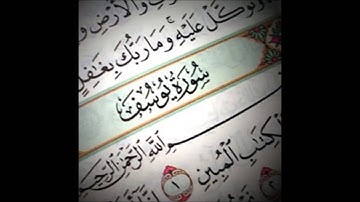 وَتَوَكَّلْ عَلَيْهِ وَمَا رَبُّكَ بِغَٰفِلٍ
سُورَةُ يُوسُفَ
اللَّهِ الرَّحْمَٰنِ الرَّحِيمِ
الْكِتَٰبِ الْمُبِينِ ١